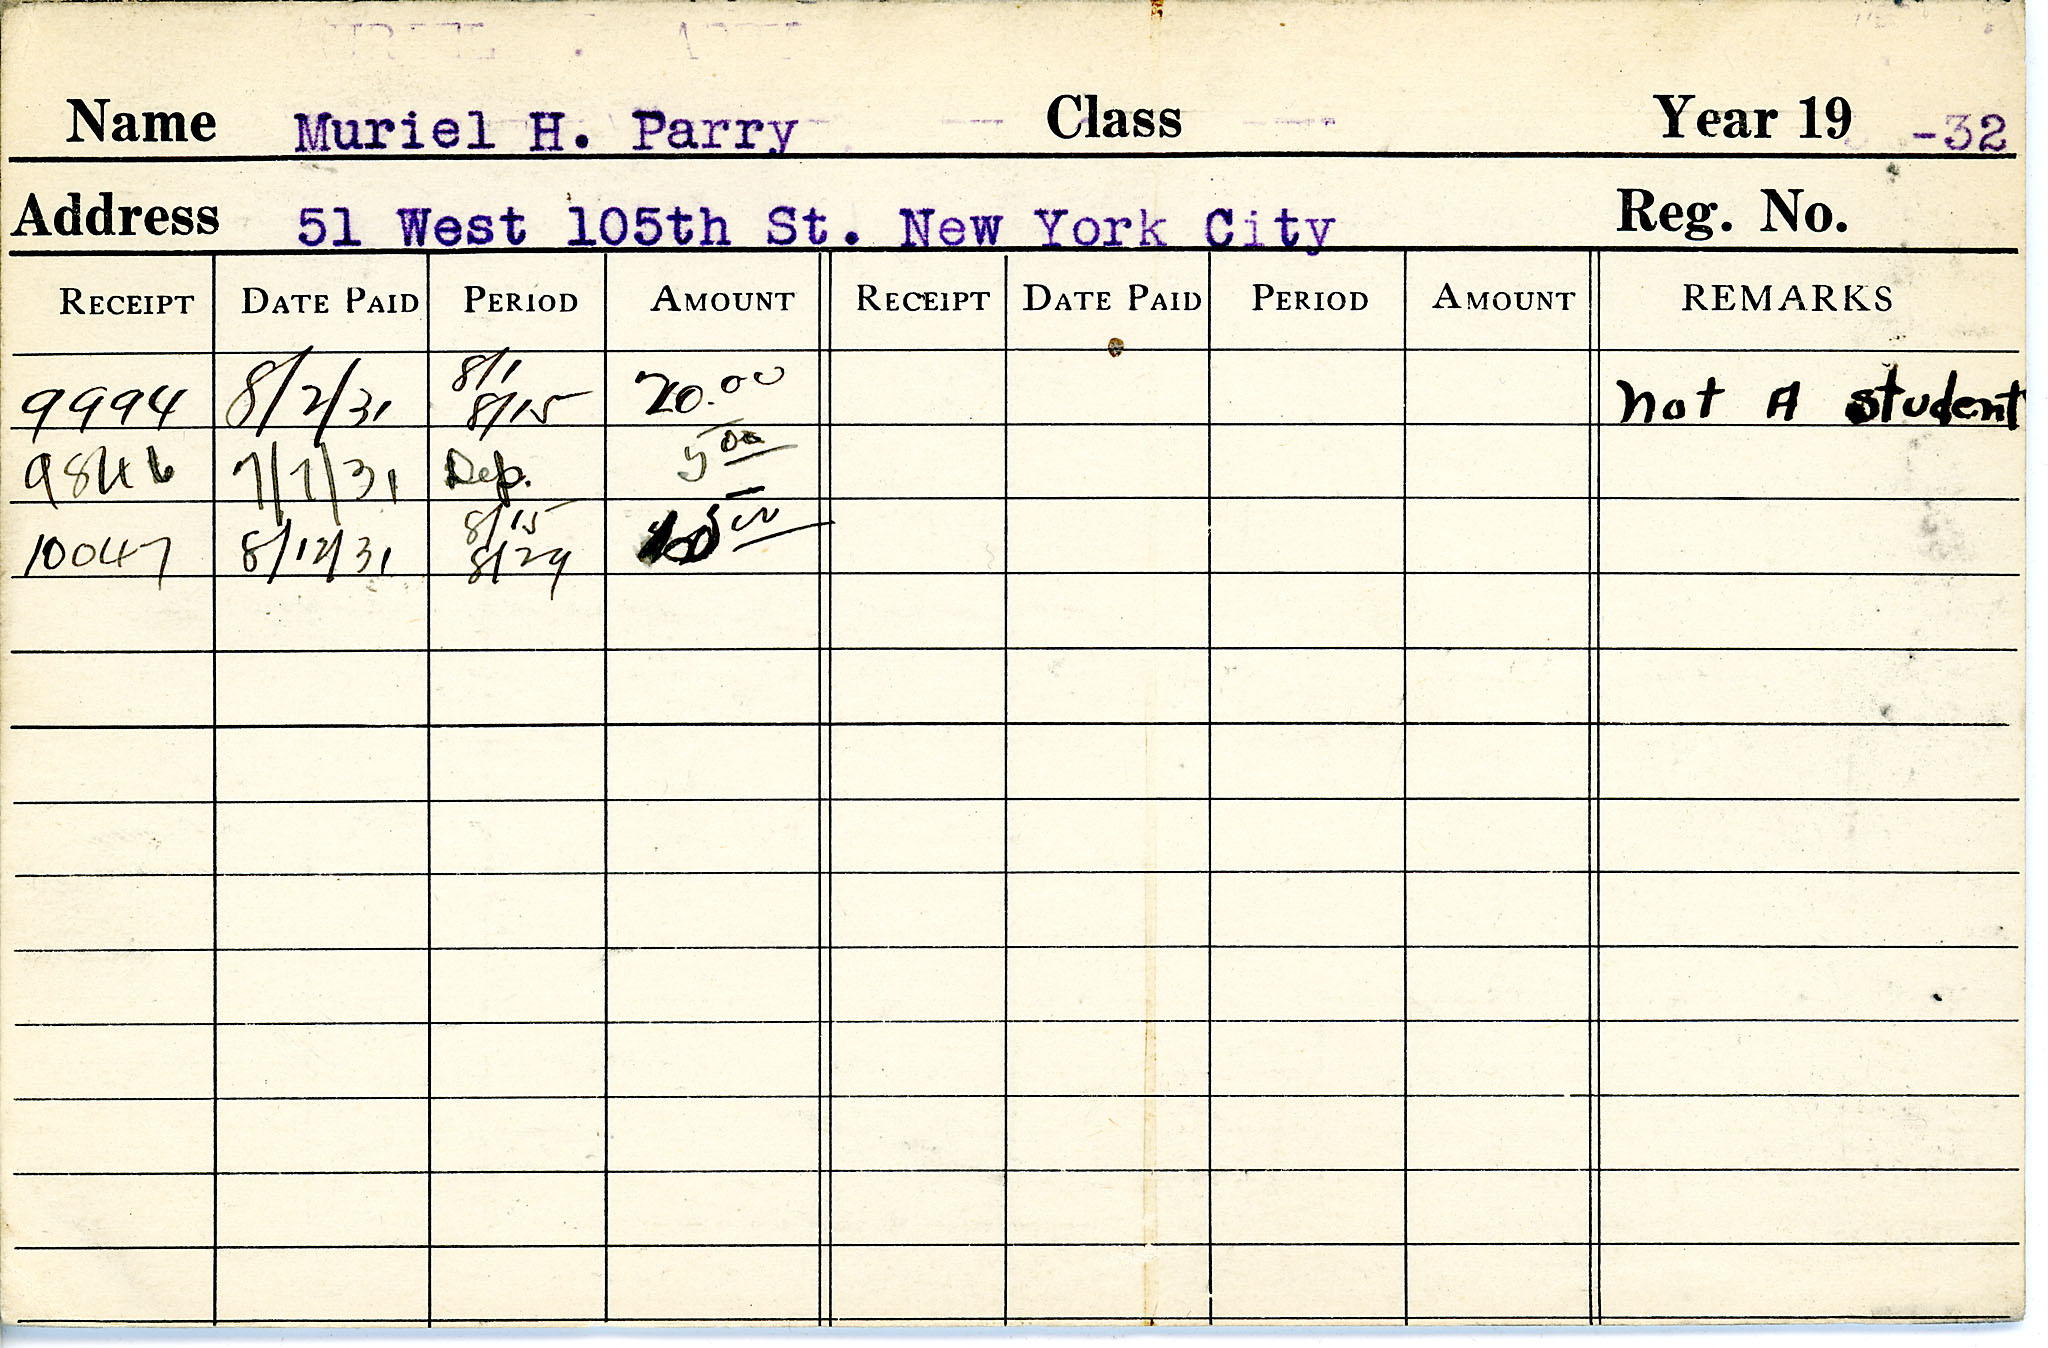 Name Muriel H. Parry Class Year 19 -32
Address 51 West 105th St. New York City Reg. No.
RECEIPT DATE PAID PERIOD AMOUNT RECEIPT DATE PAID PERIOD AMOUNT REMARKS
9994 8/2/31 8/1 8/15 20.00 not A student
9846 7/7/31 Dep. 5 00
10047 8/12/31 8/15 8/29